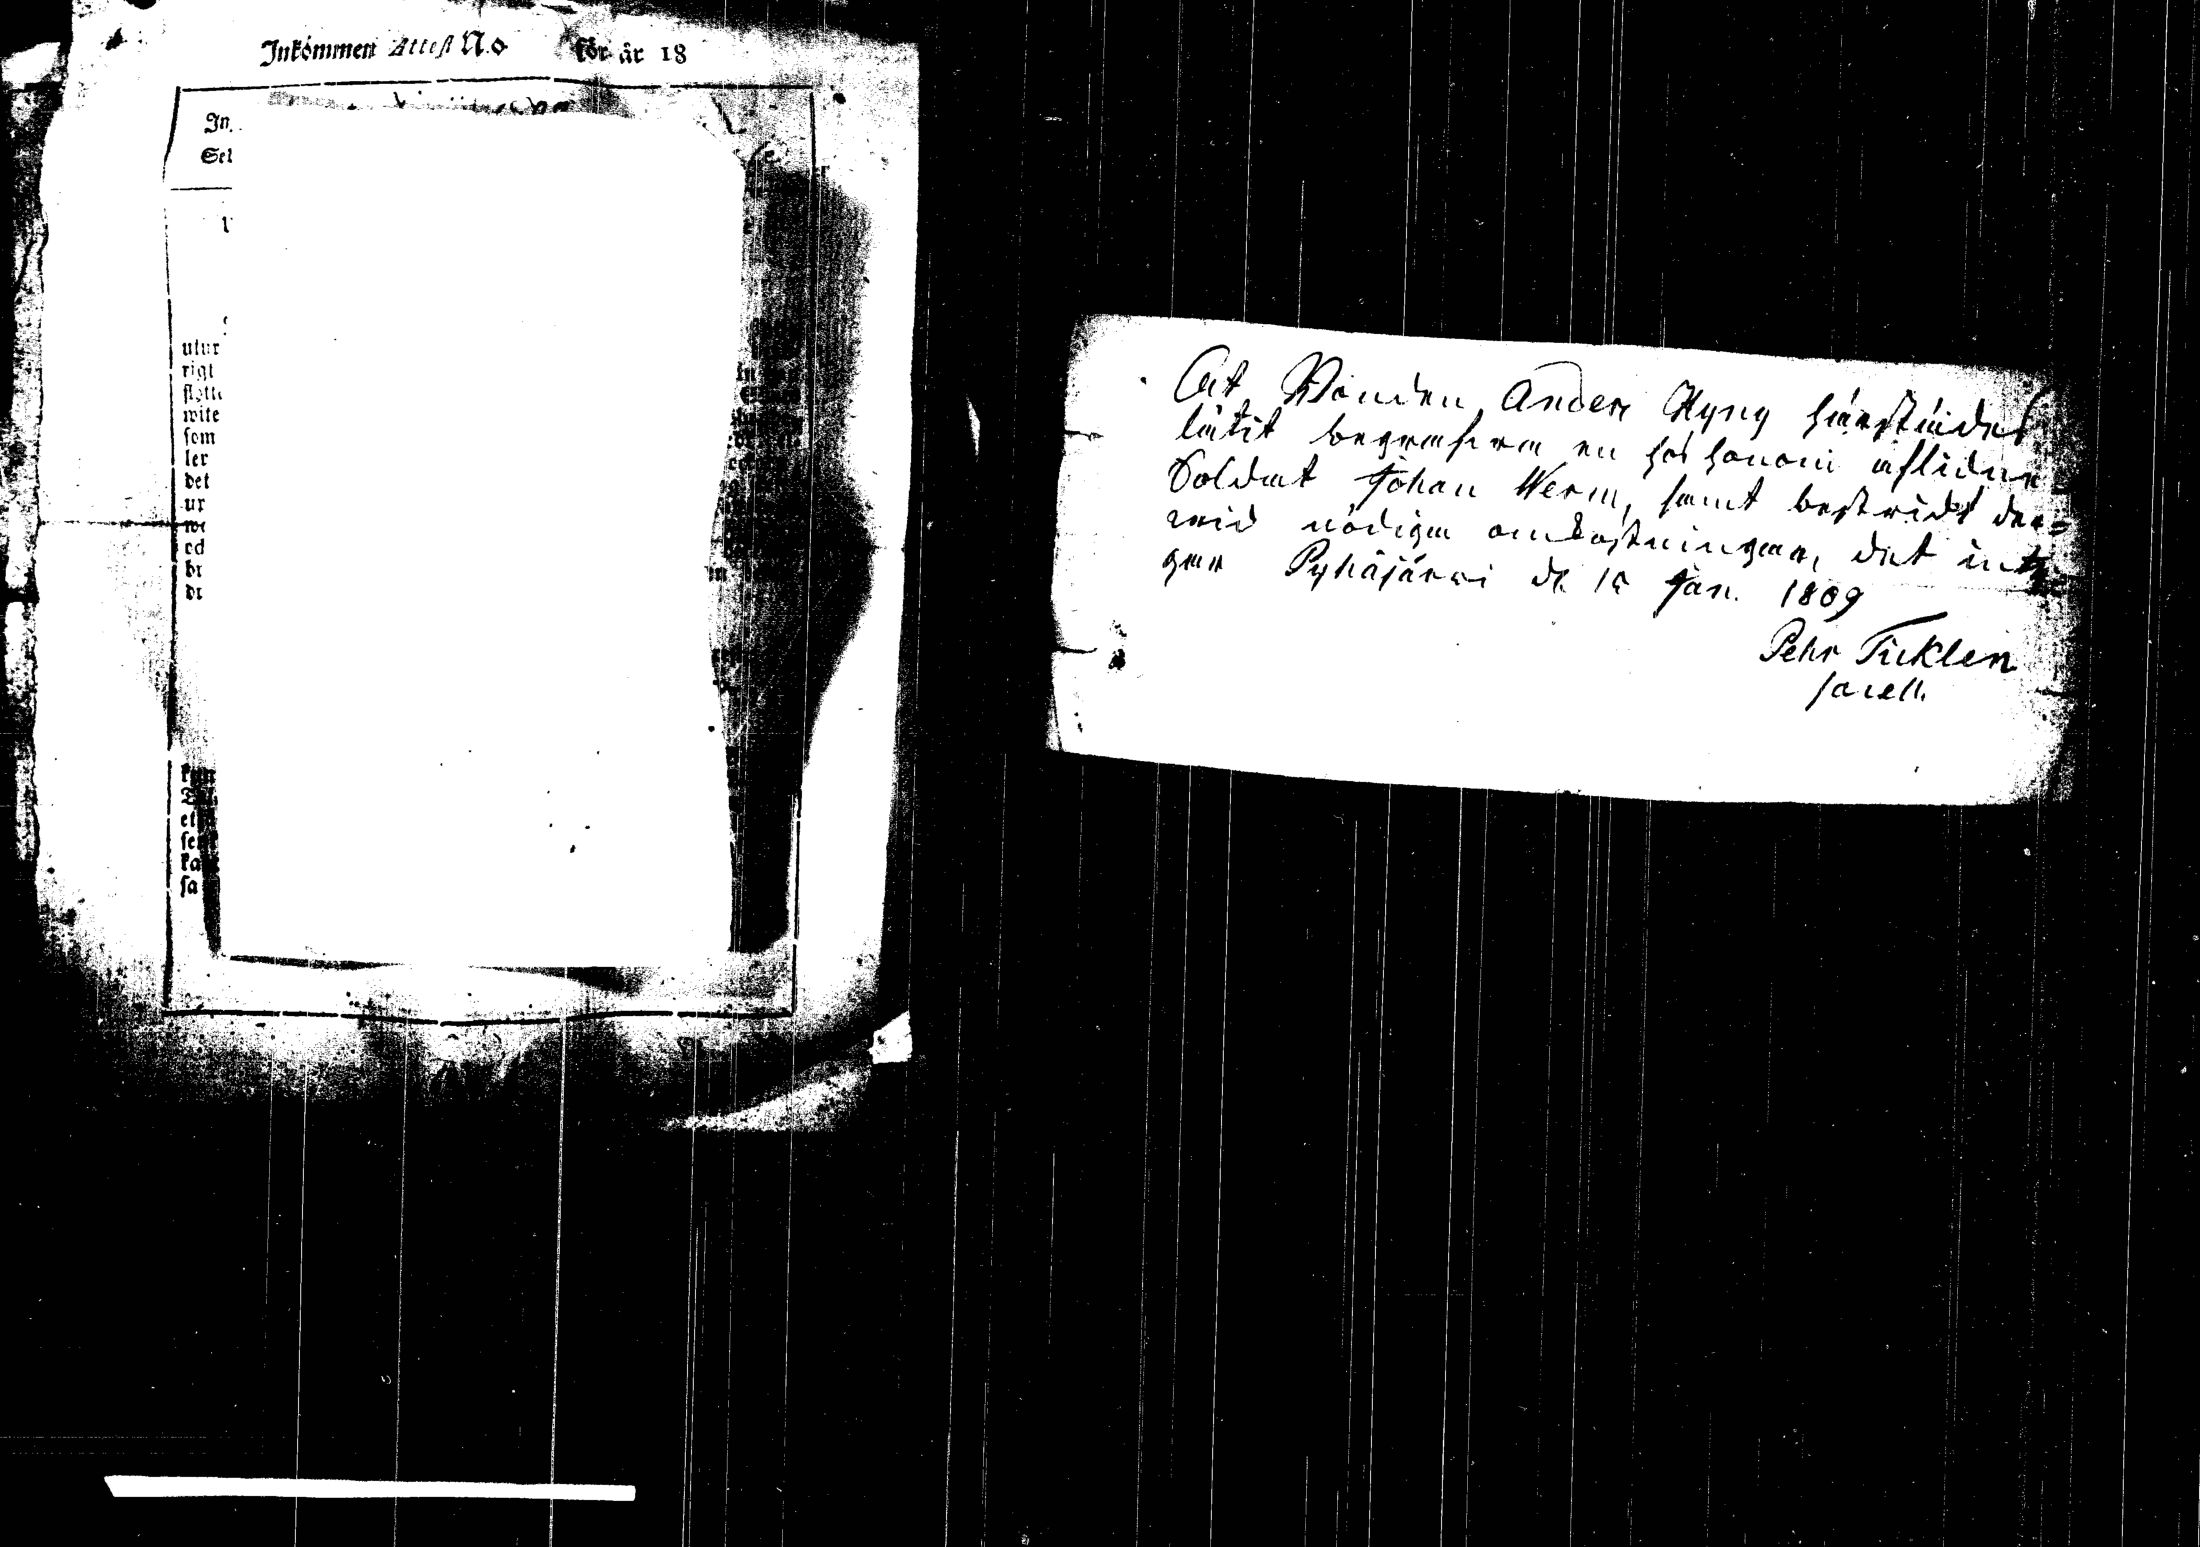 Inkommen Attest N.o för år 18
In
Sel
utur
rigt
wite
som
ler
det
ur
we
ed
br
dr
sa
At Bonden Anders Hyny härstädes
låtit begrafwa en hos honom afliden
Soldat Johan Werm, samt bestridt der=
wid nödiga omkostningar, det inty=
gar Pyhäjärwi d. 15 Jan. 1809
Pehr Ticklen
sacell.